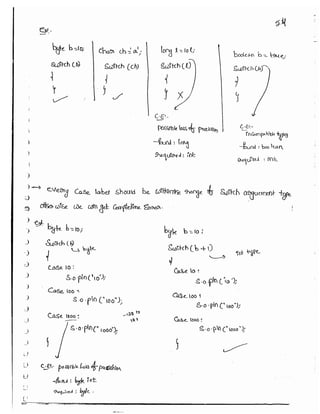 Ex:-
byte b=10;
switch (b)
{
}
char ch='a';
switch (ch)
{
}
long l=10l;
switch (l)
{
} X
C.E:-
possible loss of precision
found : long
required : int
boolean b = true;
switch (b)
{
}
C.E:-
Incompatible types
found : boolean
required : int
→ every case label should be within the range of switch argument type
otherwise we will get Compiletime Error.
Ex:
byte b=10;
switch (b)
↳ byte
{
case 10 :
S.o.pln("10");
case 100 :
S.o.pln("100");
case 1000 :
S.o.pln("1000");
}
-128 to
127
C.E:- possible loss of precision
found : int
required : byte.
byte b=10;
switch (b+1)
↳ int type
{
case 10 :
S.o.pln("10");
case 100 :
S.o.pln("100");
case 1000 :
S.o.pln("1000");
}